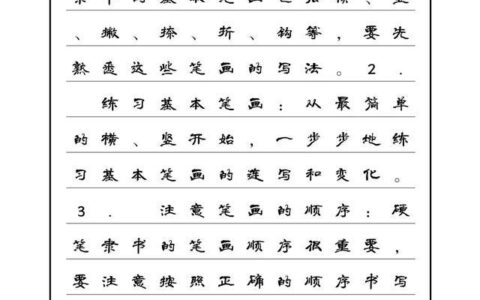 隶书的基本笔画包括横、竖
、撇、捺、折、钩等，要先
熟悉这些笔画的写法。2.
练习基本笔画：从最简单
的横、竖开始，一步步地练
习基本笔画的连写和变化。
3. 注意笔画的顺序：硬
笔隶书的笔画顺序很重要，
要注意按照正确的顺序书写